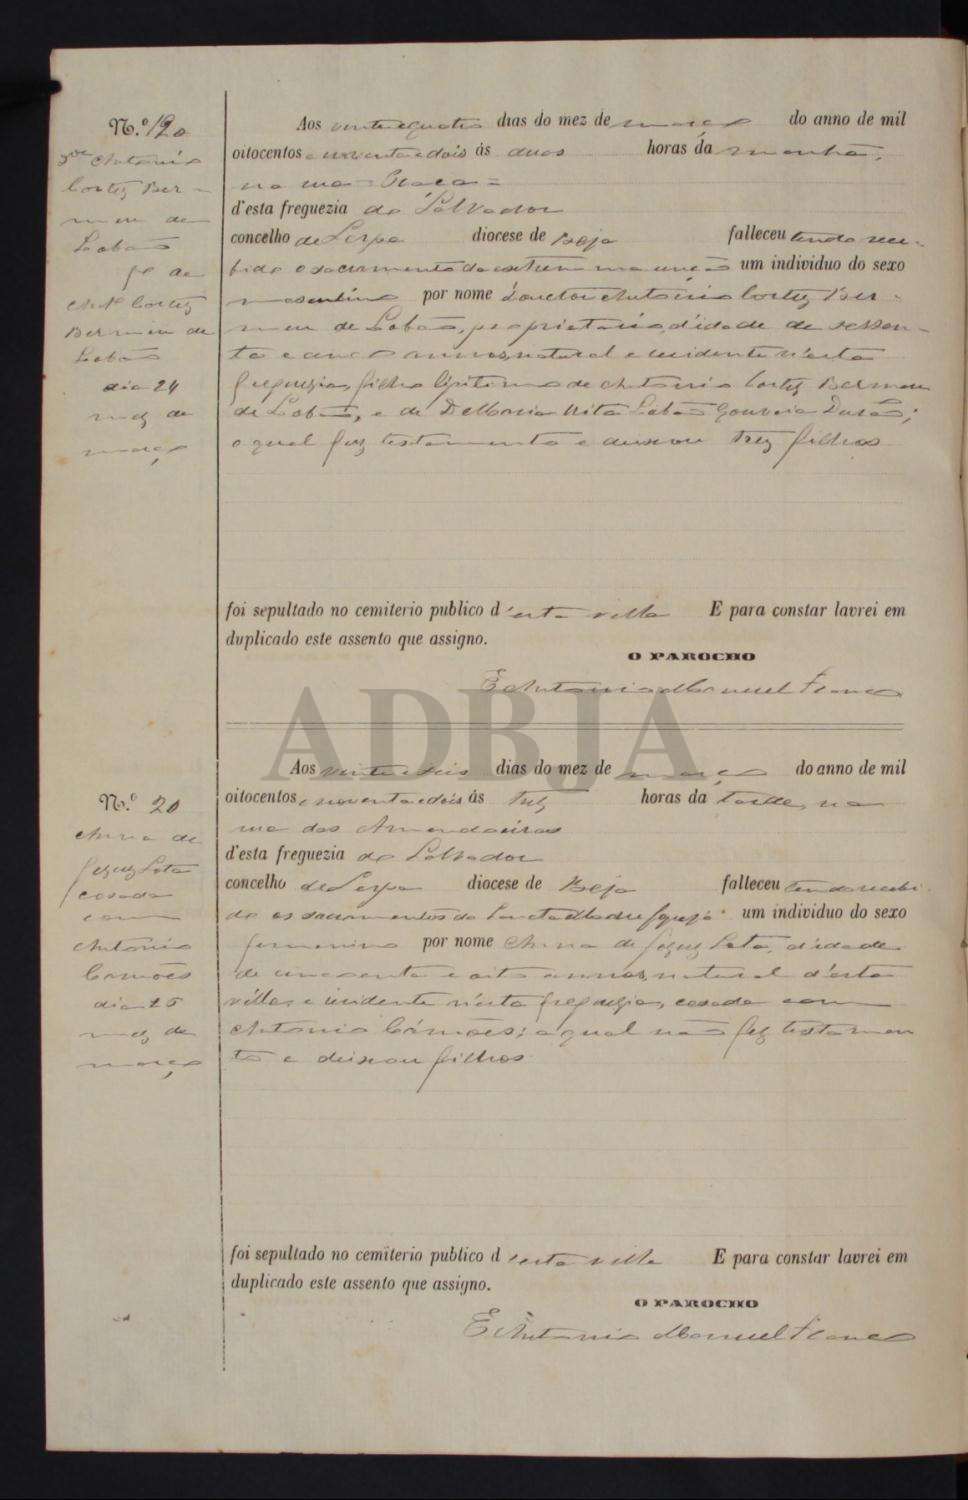 N.º 19
Aos vinte e quatro dias do mez de março do anno de mil
oitocentos e noventa e dois ás duas horas da manhã,
na rua = Praça =
d'esta freguezia do Salvador
concelho de Serpa diocese de Beja falleceu tendo rece-
bido o sacramento da extrema unção um individuo do sexo
masculino por nome Doutor Antonio Cortez Ber-
meu de Lobão, proprietario, d'idade de sessen-
ta e cinco annos, natural e residente n'esta
freguezia, filho legitimo de Antonio Cortez Bermeu
de Lobão, e de D. Maria Rita Lobão Gouveia Durão;
o qual fez testamento e deixou trez filhos
foi sepultado no cemiterio publico d'esta villa E para constar lavrei em
duplicado este assento que assigno.
O PAROCHO
Antonio Manuel Franco
Antonio
Cortez Ber-
meu de
Lobão
fº de
Antº Cortez
Bermeu de
Lobão
dia 24
mez de
março
ADBJA
N.º 20
Aos vinte e seis dias do mez de março do anno de mil
oitocentos e noventa e dois ás trez horas da tarde, na
rua das Amendoeiras
d'esta freguezia do Salvador
concelho de Serpa diocese de Beja falleceu tendo recebi-
do os sacramentos da Sancta Madre Igreja um individuo do sexo
femenino por nome Anna de Jezuz Lata, d'idade
de cincoenta e oito annos, natural d'esta
villa, e residente n'esta freguezia, casada com
Antonio Camões; a qual não fez testamen
to e deixou filhos
foi sepultado no cemiterio publico d'esta villa E para constar lavrei em
duplicado este assento que assigno.
O PAROCHO
Antonio Manuel Franco
Anna de
Jezuz Lata
casada
com
Antonio
Camões
dia
mez de
março